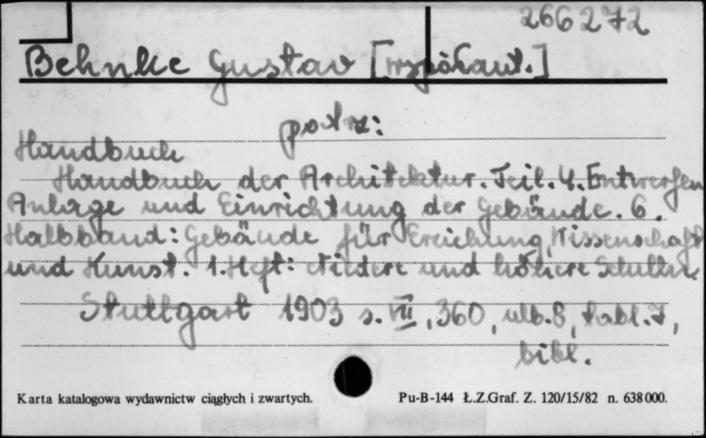 266272
Behnke Gustav [współaut.]
patrz:
Handbuch
Handbuch der Architektur. Teil. 4. Entwerfen
Anlage und Einrichtung der Gebäude. 6.
Halbband: Gebäude für Erciehung, Wissenschaft
und Kunst. 1. Heft: Niedere und höhere Schulen
Stuttgart 1903 s. VII, 360, ulb. 8, tabl. 7,
bibl.
Karta katalogowa wydawnictw ciągłych i zwartych.
Pu-B-144 Ł.Z.Graf. Z. 120/15/82 n. 638 000.